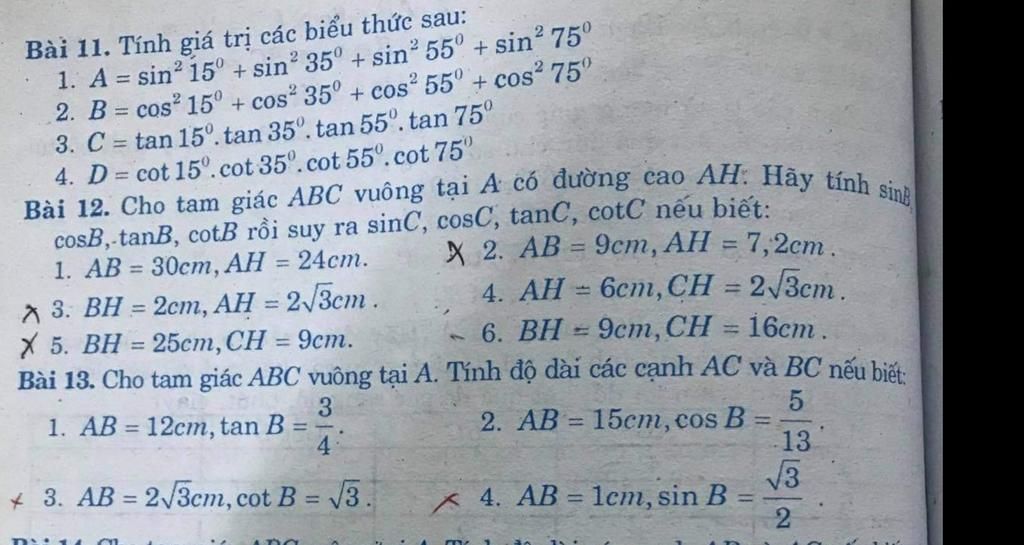 Bài 11. Tính giá trị các biểu thức sau:
1. A = sin² 15⁰ + sin² 35⁰ + sin² 55⁰ + sin² 75⁰
2. B = cos² 15⁰ + cos² 35⁰ + cos² 55⁰ + cos² 75⁰
3. C = tan 15⁰.tan 35⁰.tan 55⁰.tan 75⁰
4. D = cot 15⁰.cot 35⁰.cot 55⁰.cot 75⁰
Bài 12. Cho tam giác ABC vuông tại A có đường cao AH. Hãy tính sinB,
cosB, tanB, cotB rồi suy ra sinC, cosC, tanC, cotC nếu biết:
1. AB = 30cm, AH = 24cm. 2. AB = 9cm, AH = 7,2cm.
3. BH = 2cm, AH = 2√3cm. 4. AH = 6cm, CH = 2√3cm.
5. BH = 25cm, CH = 9cm. 6. BH = 9cm, CH = 16cm.
Bài 13. Cho tam giác ABC vuông tại A. Tính độ dài các cạnh AC và BC nếu biết:
1. AB = 12cm, tan B = 3/4. 2. AB = 15cm, cos B = 5/13.
3. AB = 2√3cm, cot B = √3. 4. AB = 1cm, sin B = √3/2.